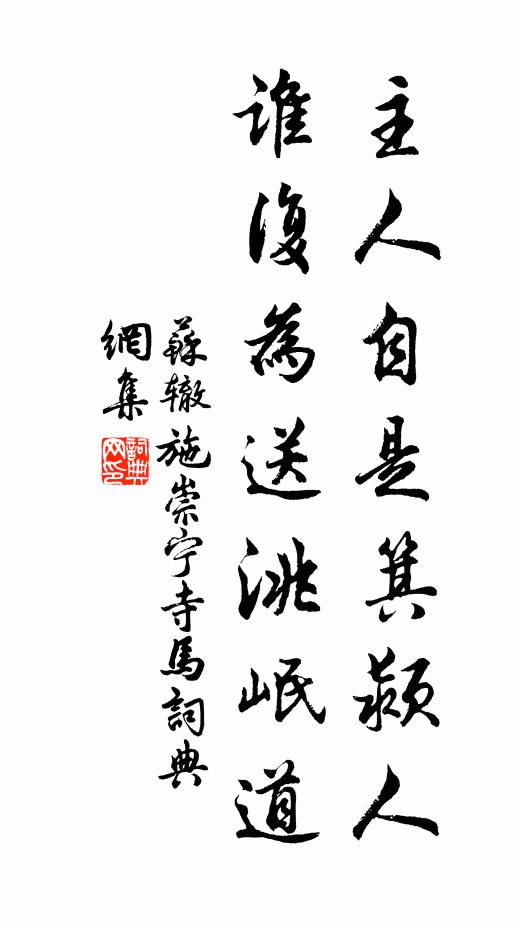 主人自是箕颍人
谁復為送洮岷道
蘇辙施崇宁寺馬詞典
網集
詞典
网印